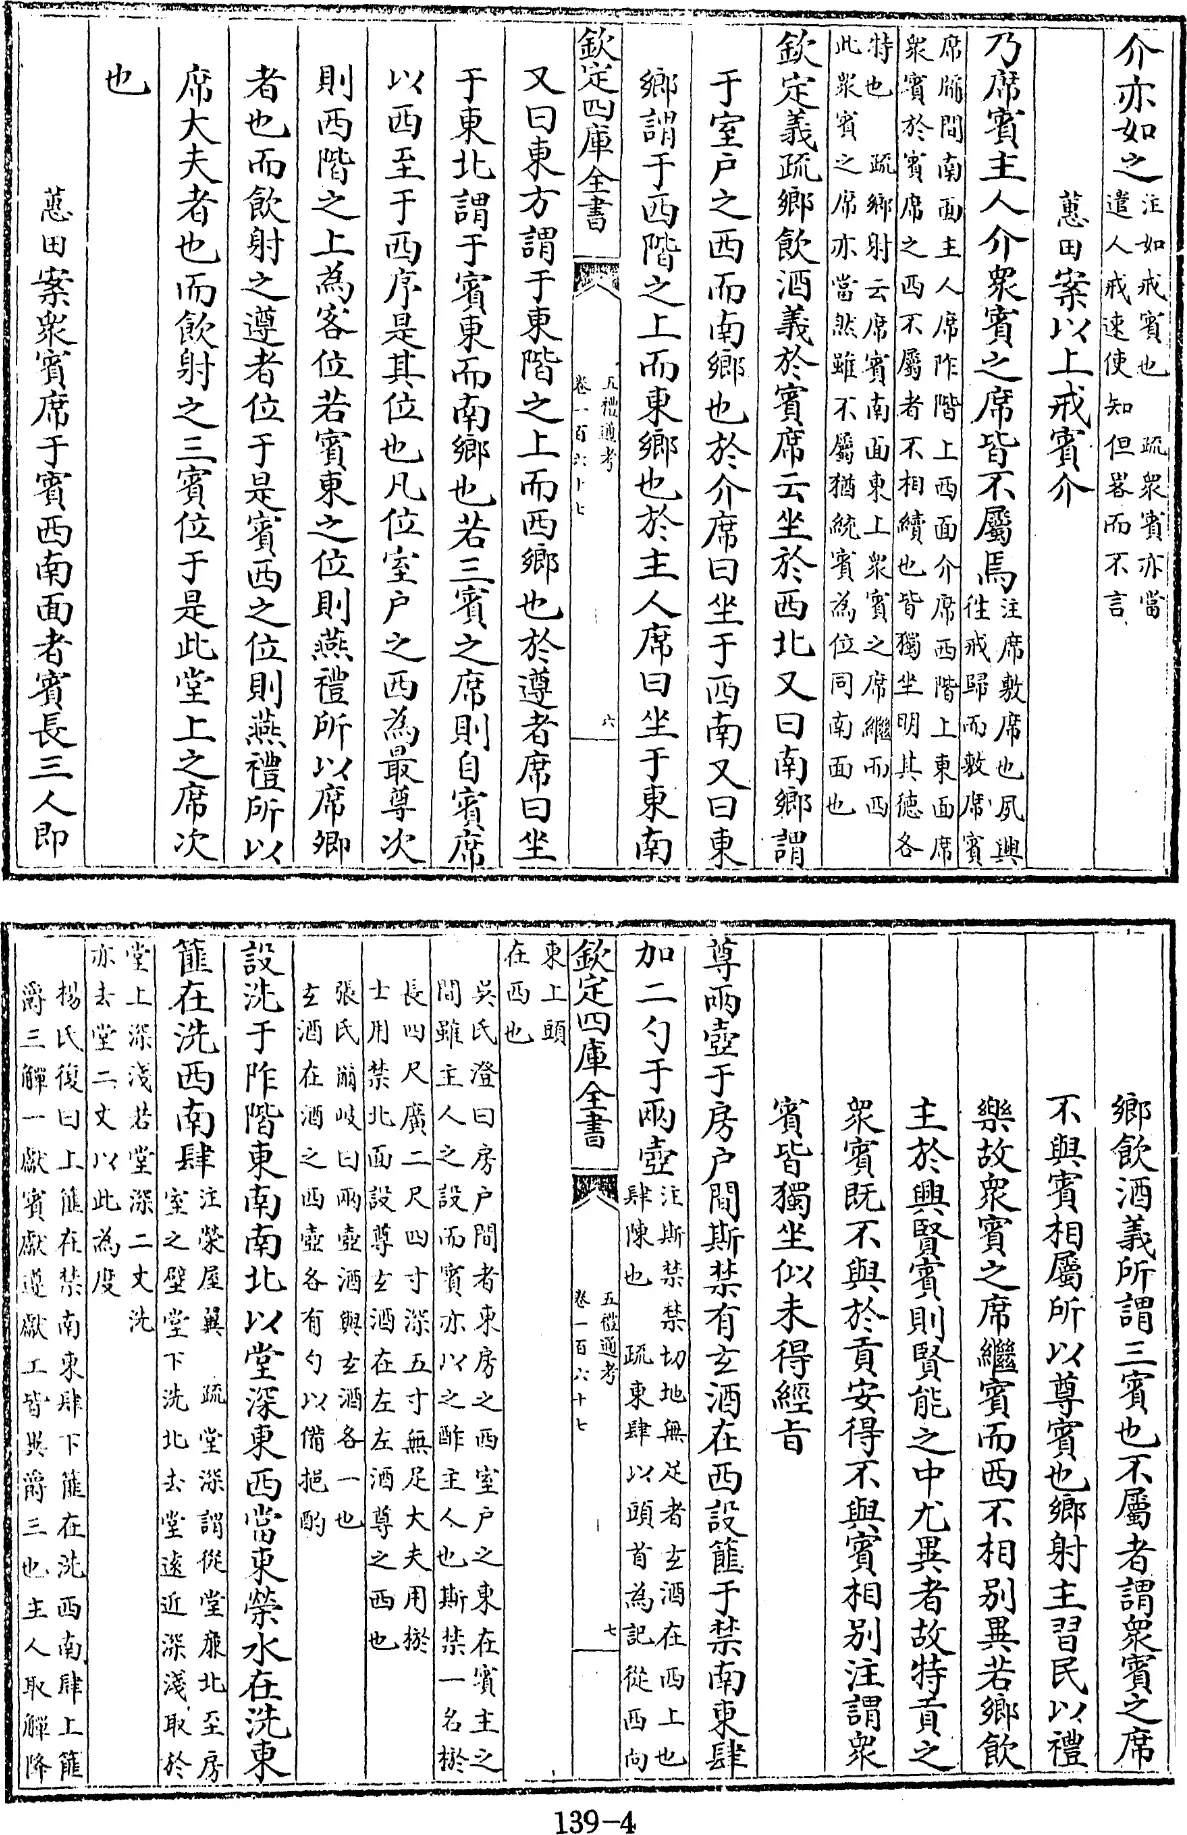 介亦如之注如戒賓也　疏衆賓亦當
遣人戒速使知但畧而不言
蕙田案以上戒賓介
乃席賓主人介衆賓之席皆不屬焉注席敷席也夙興
往戒歸而敷席賓
席牖間南面主人席阼階上西面介席西階上東面席
衆賓於賓席之西不屬者不相續也皆獨坐明其德各
特也　疏鄉射云席賓南面東上衆賓之席繼而西
此衆賓之席亦當然雖不屬猶統賓為位同南面也
欽定義疏鄉飲酒義於賓席云坐於西北又曰南鄉謂
于室户之西而南鄉也於介席曰坐于西南又曰東
鄉謂于西階之上而東鄉也於主人席曰坐于東南
欽定四庫全書
五禮通考
卷一百六十七
六
又曰東方謂于東階之上而西鄉也於遵者席曰坐
于東北謂于賓東而南鄉也若三賓之席則自賓席
以西至于西序是其位也凡位室户之西為最尊次
則西階之上為客位若賓東之位則燕禮所以席卿
者也而飲射之遵者位于是賓西之位則燕禮所以
席大夫者也而飲射之三賓位于是此堂上之席次
也
蕙田案衆賓席于賓西南面者賓長三人即
鄉飲酒義所謂三賓也不屬者謂衆賓之席
不與賓相屬所以尊賓也鄉射主習民以禮
樂故衆賓之席繼賓而西不相別異若鄉飲
主於興賢賓則賢能之中尤異者故特貢之
衆賓既不與於貢安得不與賓相別注謂衆
賓皆獨坐似未得經旨
尊兩壺于房户間斯禁有玄酒在西設篚于禁南東肆
加二勺于兩壺注斯禁禁切地無足者玄酒在西上也
肆陳也　疏東肆以頭首為記從西向
欽定四庫全書
五禮通考
卷一百六十七
七
東上頭
在西也
吳氏澄曰房户間者東房之西室户之東在賓主之
間雖主人之設而賓亦以之酢主人也斯禁一名棜
長四尺廣二尺四寸深五寸無足大夫用棜
士用禁北面設尊玄酒在左左酒尊之西也
張氏爾岐曰兩壺酒與玄酒各一也
玄酒在酒之西壺各有勺以備挹酌
設洗于阼階東南南北以堂深東西當東榮水在洗東
篚在洗西南肆注榮屋翼　疏堂深謂從堂廉北至房
室之壁堂下洗北去堂遠近深淺取於
堂上深淺若堂深二丈洗
亦去堂二丈以此為度
楊氏復曰上篚在禁南東肆下篚在洗西南肆上篚
爵三觶一獻賓獻遵獻工皆異爵三也主人取觶降